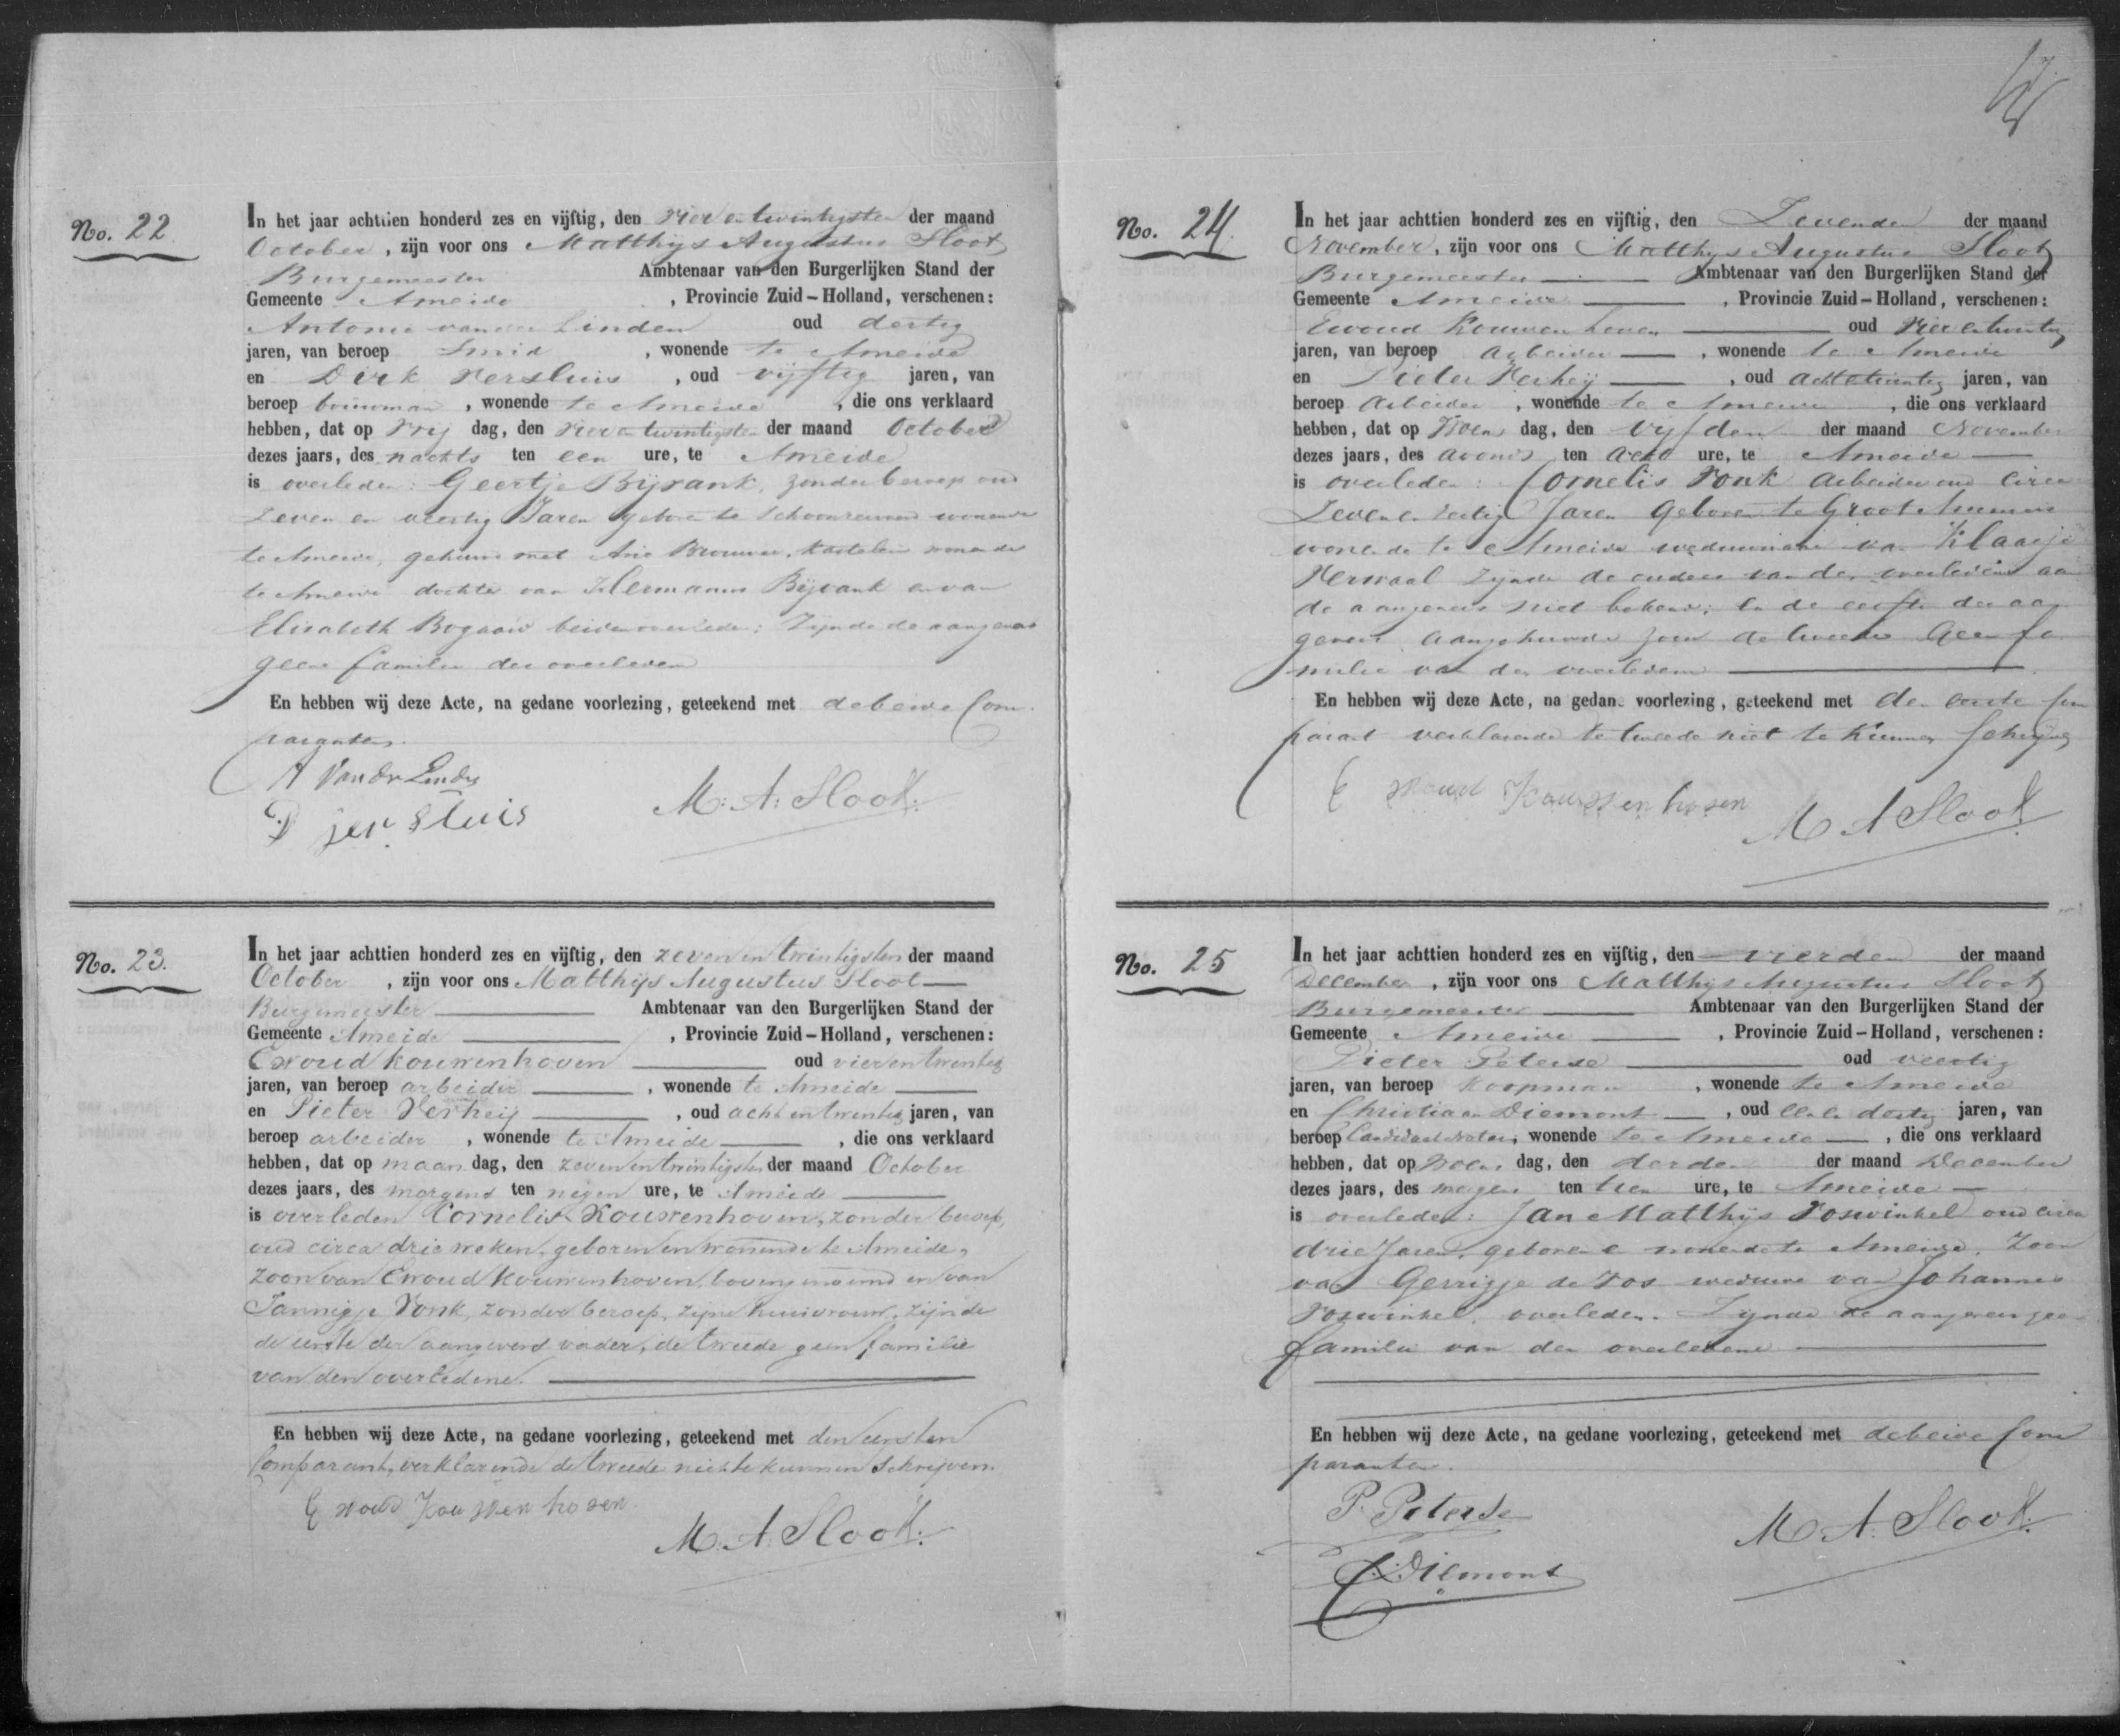 No. 22.
In het jaar achttien honderd zes en vijftig, den vier en twintigsten der maand
October, zijn voor ons Matthijs Augustus Sloot
Burgemeester Ambtenaar van den Burgerlijken Stand der
Gemeente Ameide, Provincie Zuid-Holland, verschenen:
Antonie van der Linden oud dertig
jaren, van beroep Smid, wonende te Ameide
en Dirk Versluis, oud vijftig jaren, van
beroep bouwman, wonende te Ameide, die ons verklaard
hebben, dat op Vrij dag, den vier en twintigsten der maand October
dezes jaars, des nachts ten een ure, te Ameide
is overleden: Geertje Bijvank, zonder beroep oud
Zeven en veertig Jaren geboren te Schoonrewoerd wonende
te Ameide, gehuwd met Arie Brouwer, kastelein wonende
te Ameide dochter van Hermanus Bijvank en van
Elisabeth Bogaard beiden overleden; Zijnde de aangevers
geene familie der overledene
En hebben wij deze Acte, na gedane voorlezing, geteekend met de beide Com
paranten.
A Van der Linden
D Versluis
M. A. Sloot.
No. 23.
In het jaar achttien honderd zes en vijftig, den zeven en twintigsten der maand
October, zijn voor ons Matthijs Augustus Sloot
Burgemeester Ambtenaar van den Burgerlijken Stand der
Gemeente Ameide, Provincie Zuid-Holland, verschenen:
Ewoud Kouwenhoven oud vier en twintig
jaren, van beroep arbeider, wonende te Ameide
en Pieter Verheij, oud acht en twintig jaren, van
beroep arbeider, wonende te Ameide, die ons verklaard
hebben, dat op maan dag, den zeven en twintigsten der maand October
dezes jaars, des morgens ten negen ure, te Ameide
is overleden Cornelis Kouwenhoven, zonder beroep,
oud circa drie weken, geboren en wonende te Ameide,
zoon van Ewoud Kouwenhoven, bovengenoemd en van
Jannigje Vonk, zonder beroep, zijne huisvrouw, zijnde
de eerste der aangevers vader, de tweede geen familie
van den overledene.
En hebben wij deze Acte, na gedane voorlezing, geteekend met den eersten
Comparant, verklarende de tweede niet te kunnen schrijven.
Ewoud Kouwenhoven
M. A. Sloot.
No. 24.
In het jaar achttien honderd zes en vijftig, den Zevenden der maand
November, zijn voor ons Matthijs Augustus Sloot
Burgemeester Ambtenaar van den Burgerlijken Stand der
Gemeente Ameide, Provincie Zuid-Holland, verschenen:
Ewoud Kouwenhoven oud vier en twintig
jaren, van beroep Arbeider, wonende te Ameide
en Pieter Verheij, oud acht en twintig jaren, van
beroep Arbeider, wonende te Ameide, die ons verklaard
hebben, dat op Woens dag, den vijfden der maand November
dezes jaars, des avonds ten acht ure, te Ameide
is overleden: Cornelis Vonk Arbeider oud circa
Zeven en Jaren Geboren te Groot Ammers
wonende te Ameide weduwnaar van Klaasje
Verwaal zijnde de ouders van den overledene aan
de aangevers niet bekend; en de eerste der aan
gevers aangehuwde zoon de tweede Geen fa
milie van den overledene
En hebben wij deze Acte, na gedane voorlezing, geteekend met den eerste Com
parant verklarende de tweede niet te kunnen schrijven
Ewoud Kouwenhoven
M A Sloot
No. 25
In het jaar achttien honderd zes en vijftig, den vierden der maand
December, zijn voor ons Matthijs Augustus Sloot
Burgemeester Ambtenaar van den Burgerlijken Stand der
Gemeente Ameide, Provincie Zuid-Holland, verschenen:
Pieter Peterse oud veertig
jaren, van beroep Koopman, wonende te Ameide
en Christiaan Diemont, oud dertig jaren, van
beroep Candidaat Notaris, wonende te Ameide, die ons verklaard
hebben, dat op Woens dag, den derden der maand December
dezes jaars, des morgens ten tien ure, te Ameide
is overleden: Jan Matthijs Voswinkel oud circa
drie Jaren, geboren en wonende te Ameide, Zoon
van Gerrigje de Vos weduwe van Johannes
Voswinkel, overleden. Zijnde de aangevers geen
familie van den overledene
En hebben wij deze Acte, na gedane voorlezing, geteekend met de beide Com
paranten.
P. Peterse
C. Diemont
M. A. Sloot.